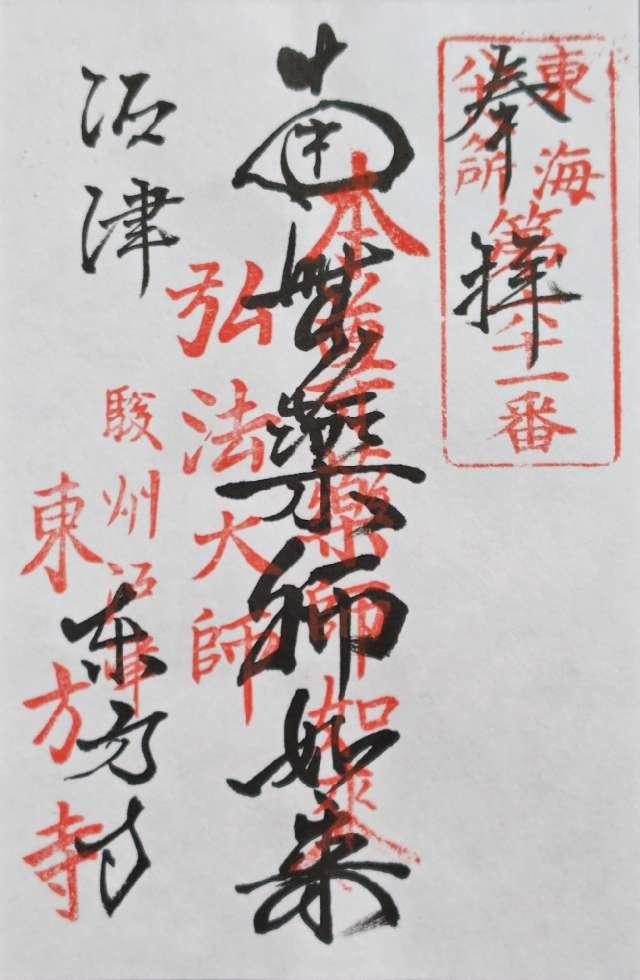 奉拝
東海
八十八ヶ所
第八十一番
南無薬師如来
本尊藥師如来
弘法大師
沼津
東方寺
駿州沼津
東方寺